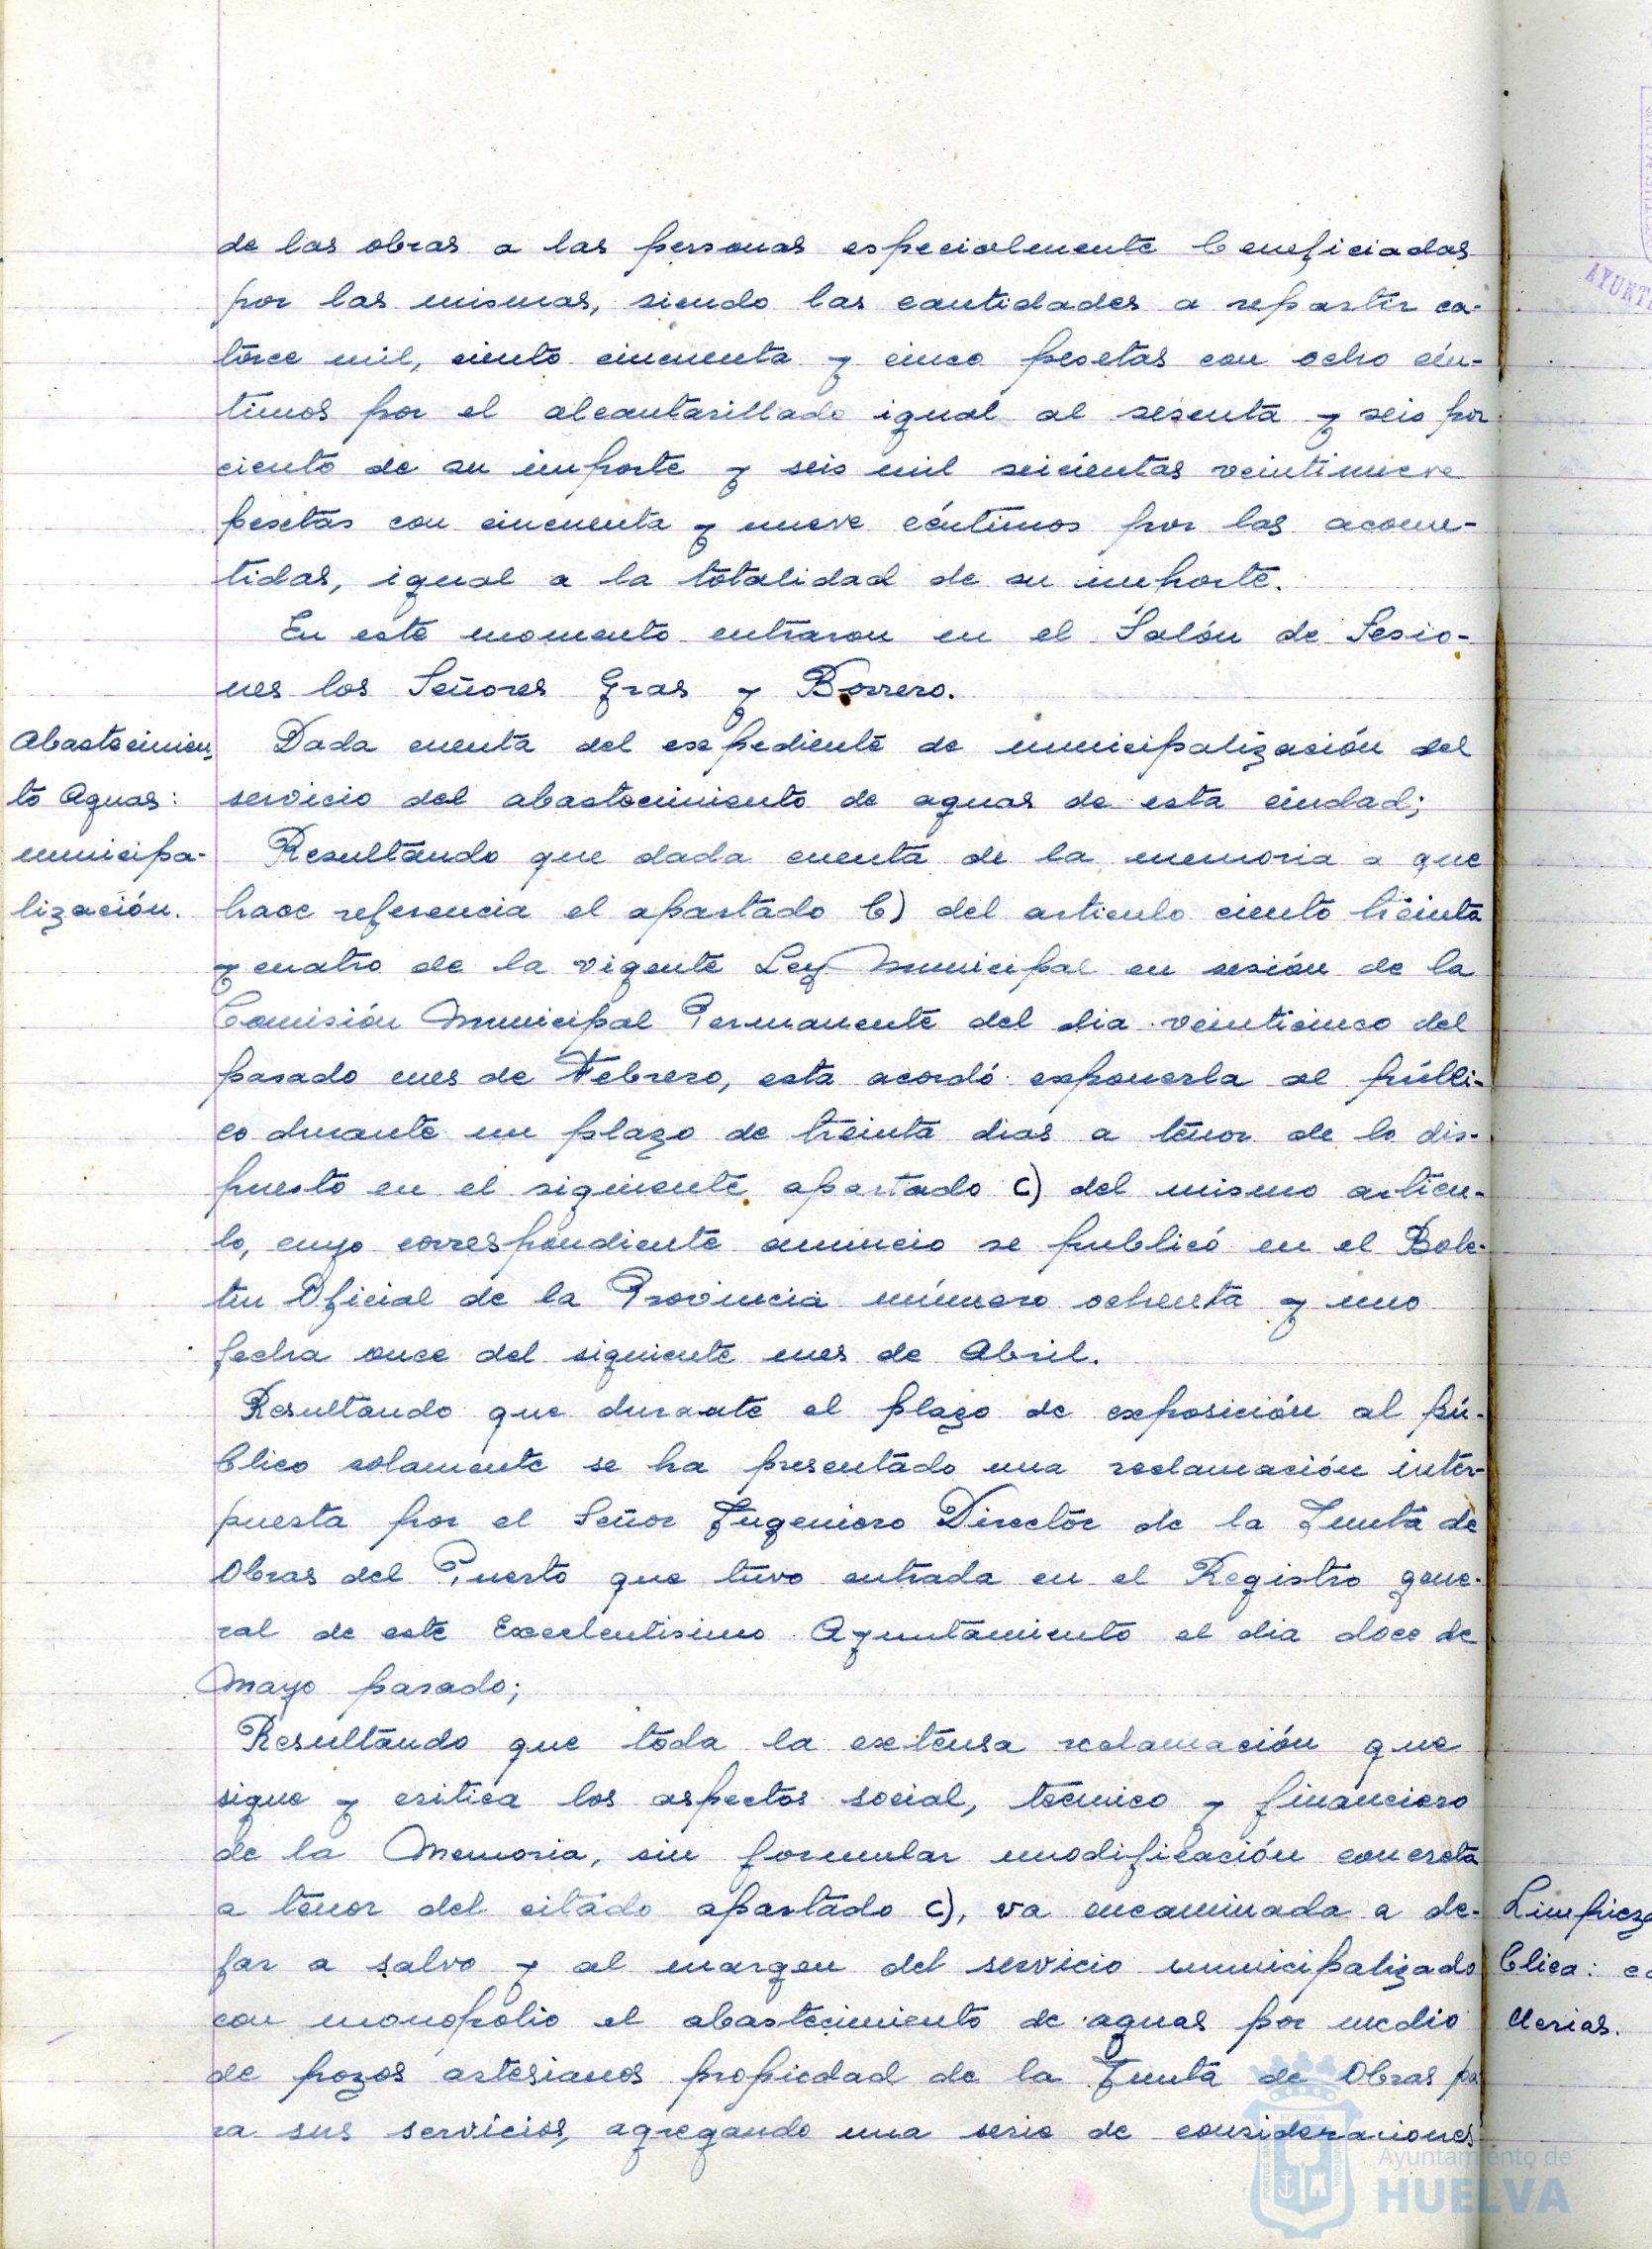 de las obras a las personas especialmente beneficiadas
por las mismas, siendo las cantidades a repartir ca-
torce mil, ciento cincuenta y cinco pesetas con ocho cén-
timos por el alcantarillado igual al sesenta y seis por
ciento de su importe y seis mil seicientas veintinueve
pesetas con cincuenta y nueve céntimos por las acome-
tidas, igual a la totalidad de su importe.
En este momento entraron en el Salón de Sesio-
nes los Señores Gras y Borrero.
Abastecimien-
to Aguas:
municipa-
lización.
Dada cuenta del expediente de municipalización del
servicio del abastecimiento de aguas de esta ciudad;
Resultando que dada cuenta de la memoria a que
hace referencia el apartado b) del articulo ciento treinta
y cuatro de la vigente Ley Municipal en sesión de la
Comisión Municipal Permanente del dia veinticinco del
pasado mes de Febrero, esta acordó exponerla al públi-
co durante un plazo de treinta dias a tenor de lo dis-
puesto en el siguiente apartado c) del mismo articu-
lo, cuyo correspondiente anuncio se publicó en el Bole-
tin Oficial de la Provincia número ochenta y uno
fecha once del siguiente mes de Abril.
Resultando que durante el plazo de exposición al pú-
blico solamente se ha presentado una reclamación inter-
puesta por el Señor Ingeniero Director de la Junta de
Obras del Puerto que tuvo entrada en el Registro gene-
ral de este Excelentisimo Ayuntamiento el dia doce de
Mayo pasado;
Resultando que toda la extensa reclamación que
sigue y critica los aspectos social, tecnico y financiero
de la Memoria, sin formular modificación concreta
a tenor del citado apartado c), va encaminada a de-
jar a salvo y al margen del servicio municipalizado
con monopolio el abastecimiento de aguas por medio
de pozos artesianos propiedad de la Junta de Obras pa
ra sus servicios, agregando una serie de consideraciones
Limpieza
blica:
llerias.
Ayuntamiento de
HUELVA